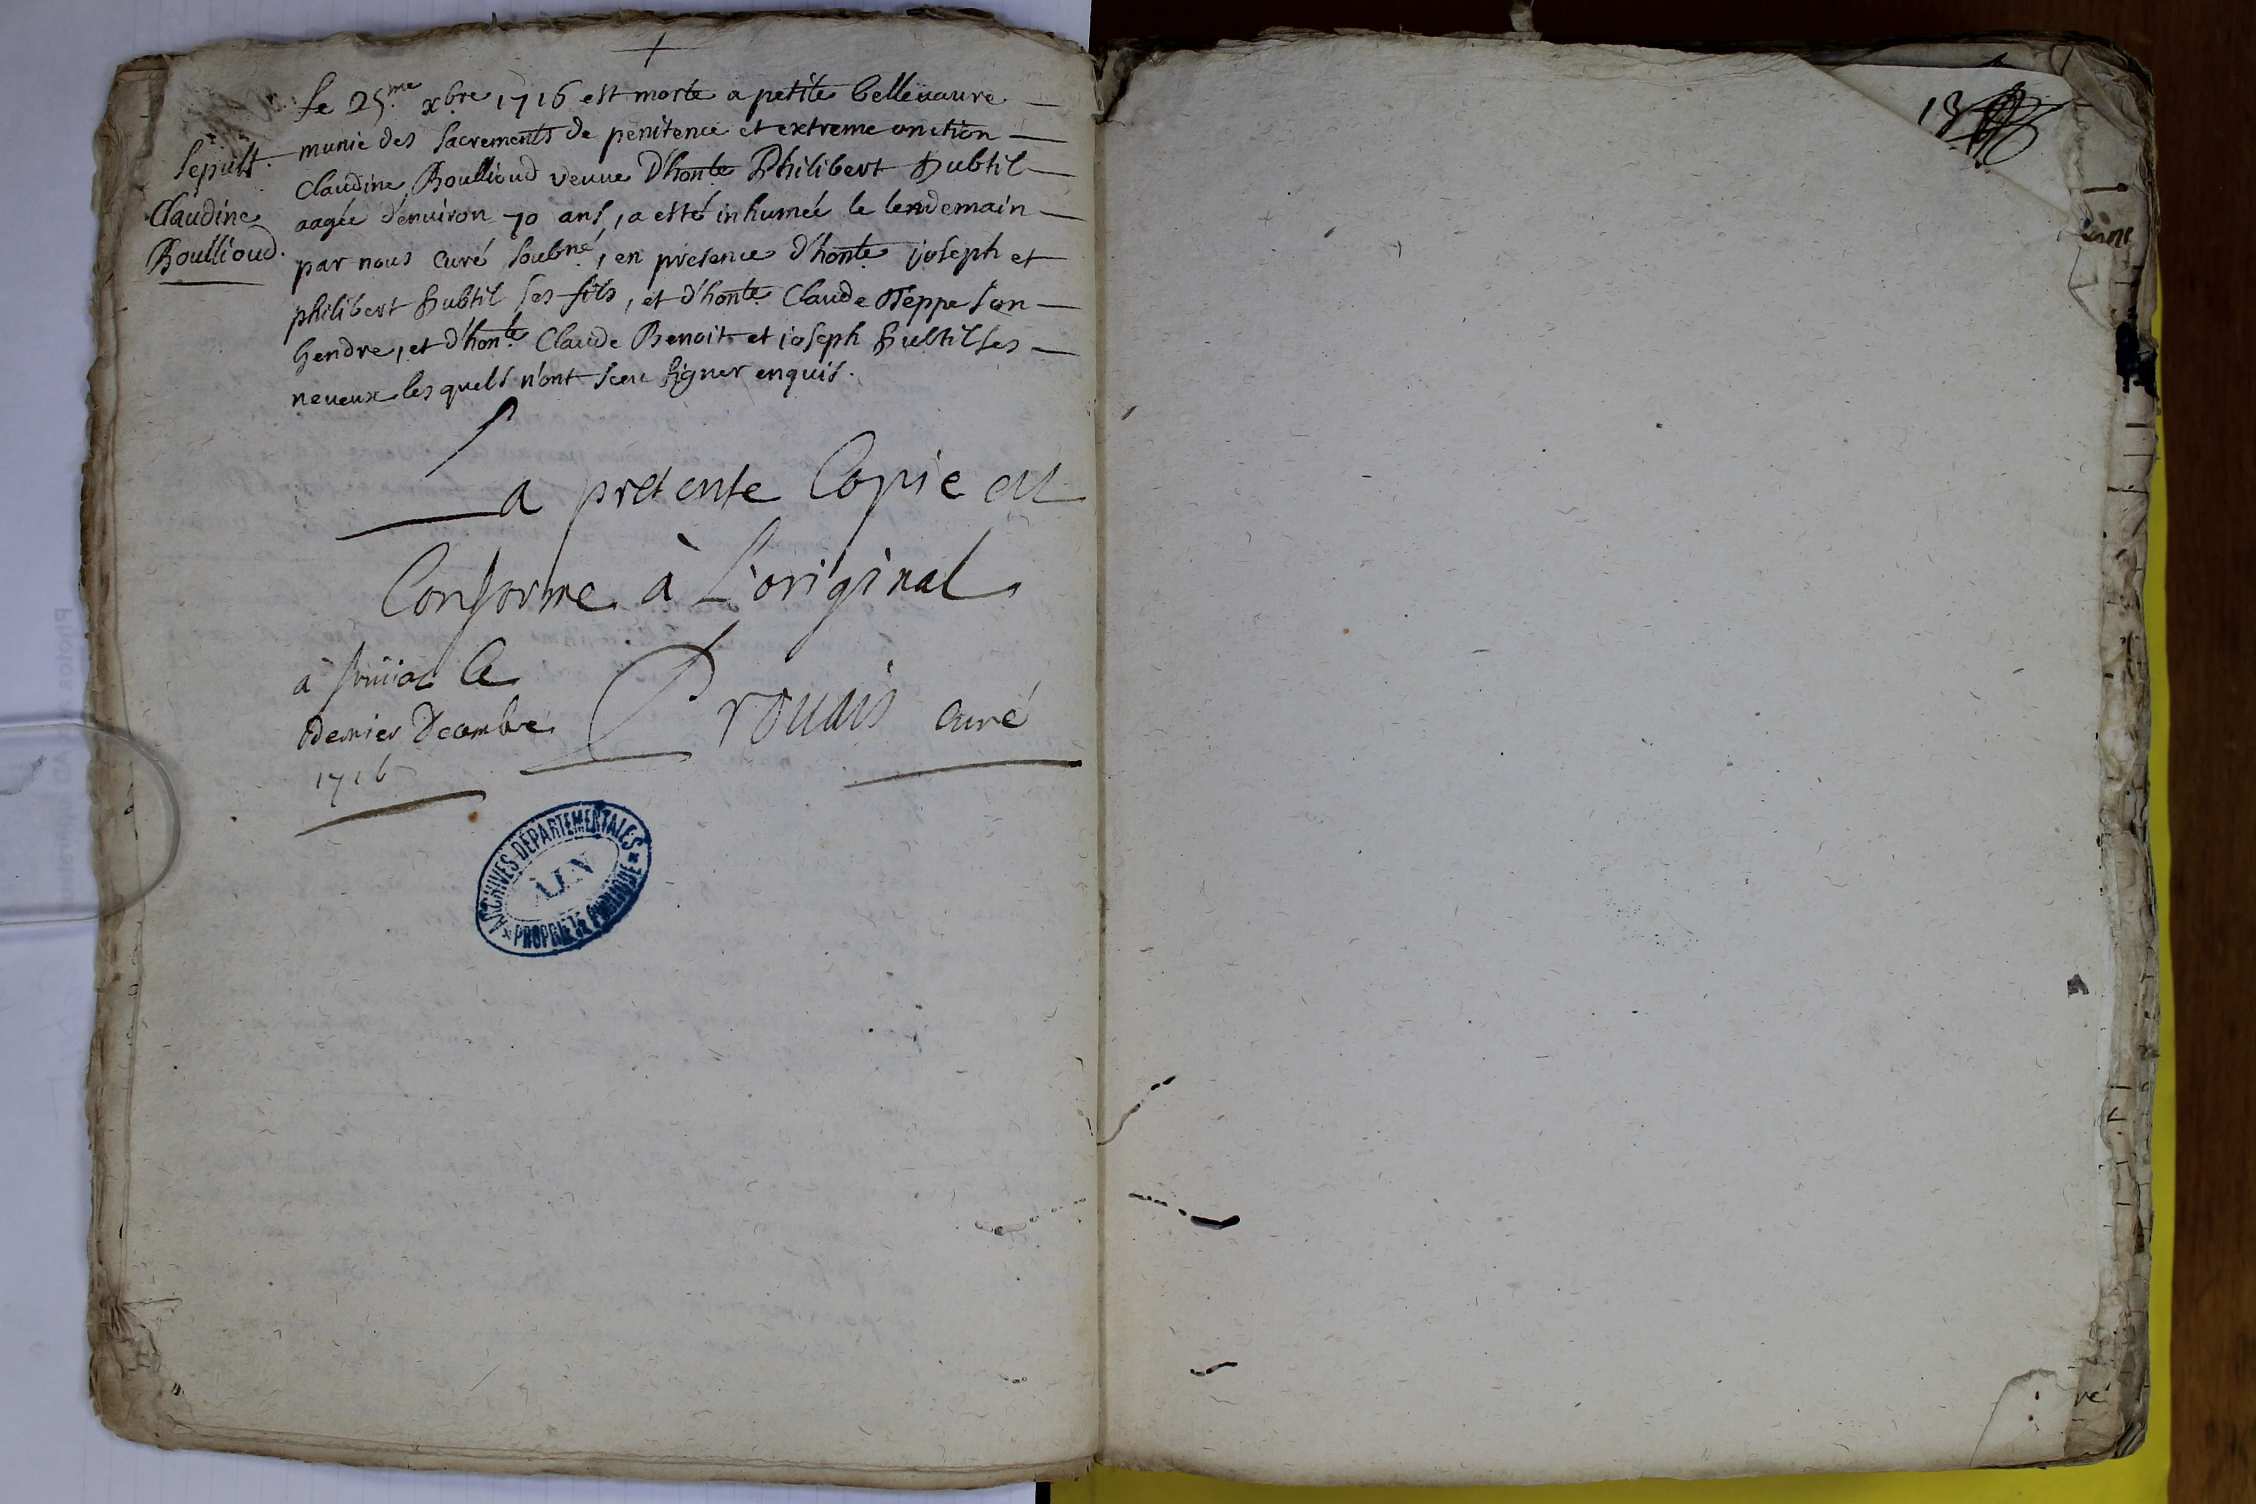 +
le 25.me xbre 1716 est morte a petite bellevavre
munie des Sacrements de penitence et extreme onction
Claudine Boullioud veuve d'honle Philibert Subtil
aagée d'environ 70 ans, a esté inhumée le lendemain
par nous curé soubné, en presence d'honle joseph et
philibert Subtil ses fils, et d'honle Claude Teppe son
gendre, et d'honle Claude Benoit et joseph Subtil ses
neveux lesquels n'ont sceu signer enquis.
Sepult.
Claudine
Boullioud.
La presente Copie est
Conforme à L'original
à le
dernier Decembre
1716
Prouais curé
ARCHIVES DÉPARTEMENTALES
AIN
PROPRIÉTÉ PUBLIQUE
13